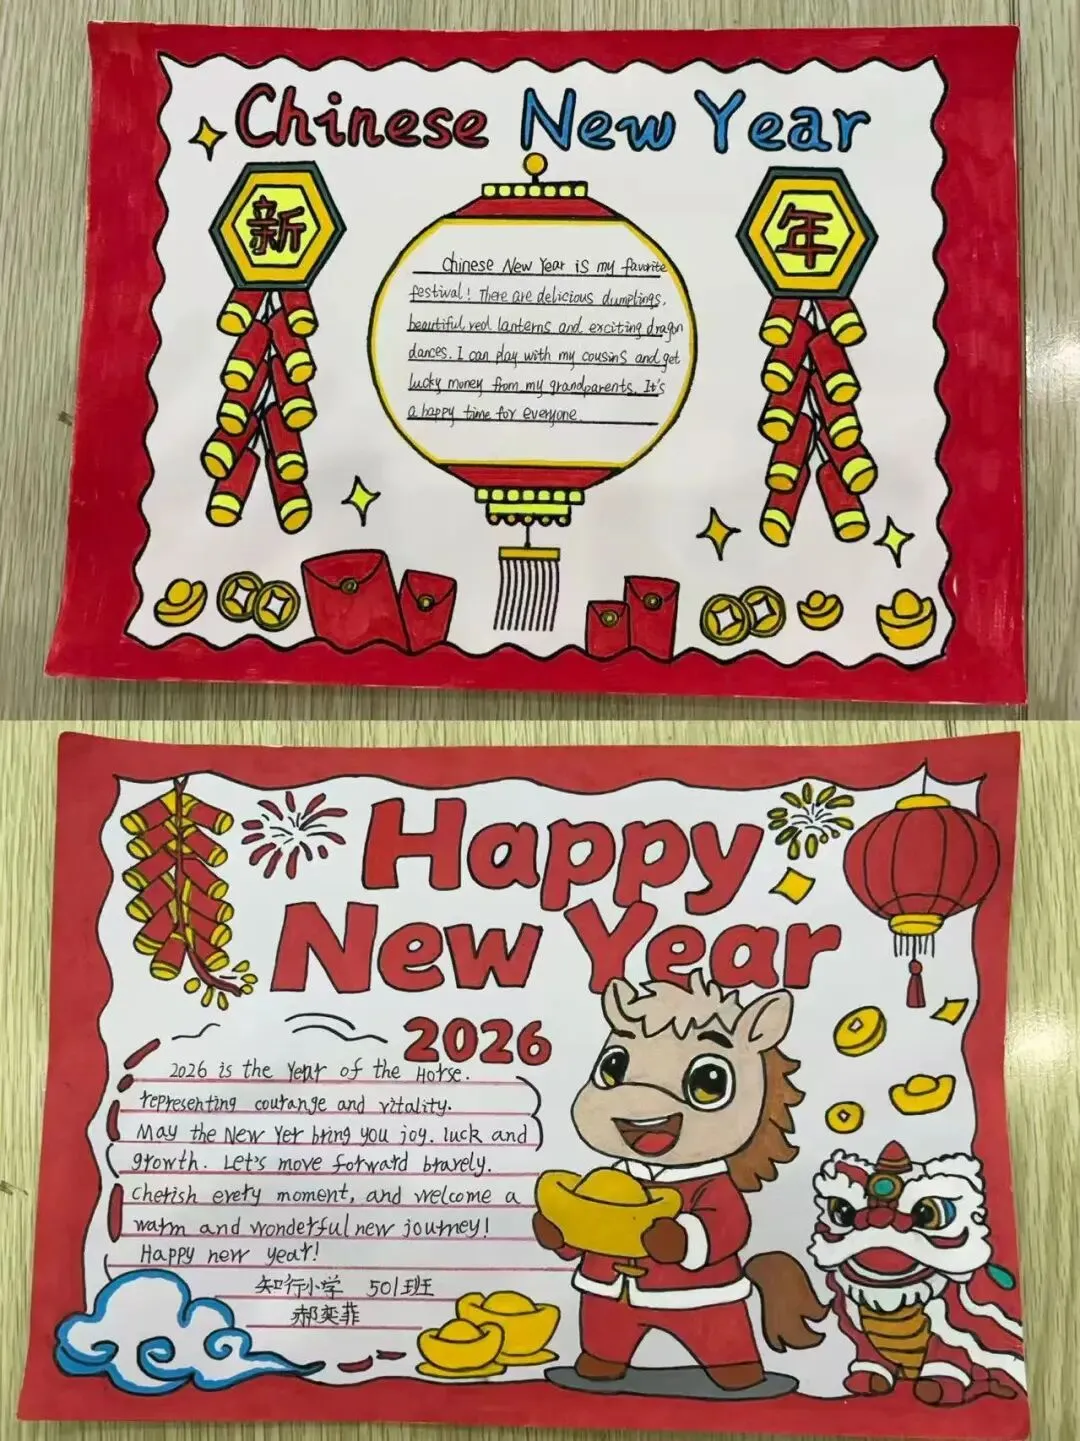 Chinese New Year
新
年
Chinese New Year is my favorite
festival! There are delicious dumplings,
beautiful red lanterns and exciting dragon
dances. I can play with my cousins and get
lucky money from my grandparents. It's
a happy time for everyone.
Happy
New Year
2026
2026 is the Year of the Horse.
representing courange and vitality.
May the New Yer bring you joy. luck and
growth. Let's move forward bravely.
cherish every moment, and welcome a
warm and wonderful new journey!
Happy new year!
知行小学 501班
郝奕菲